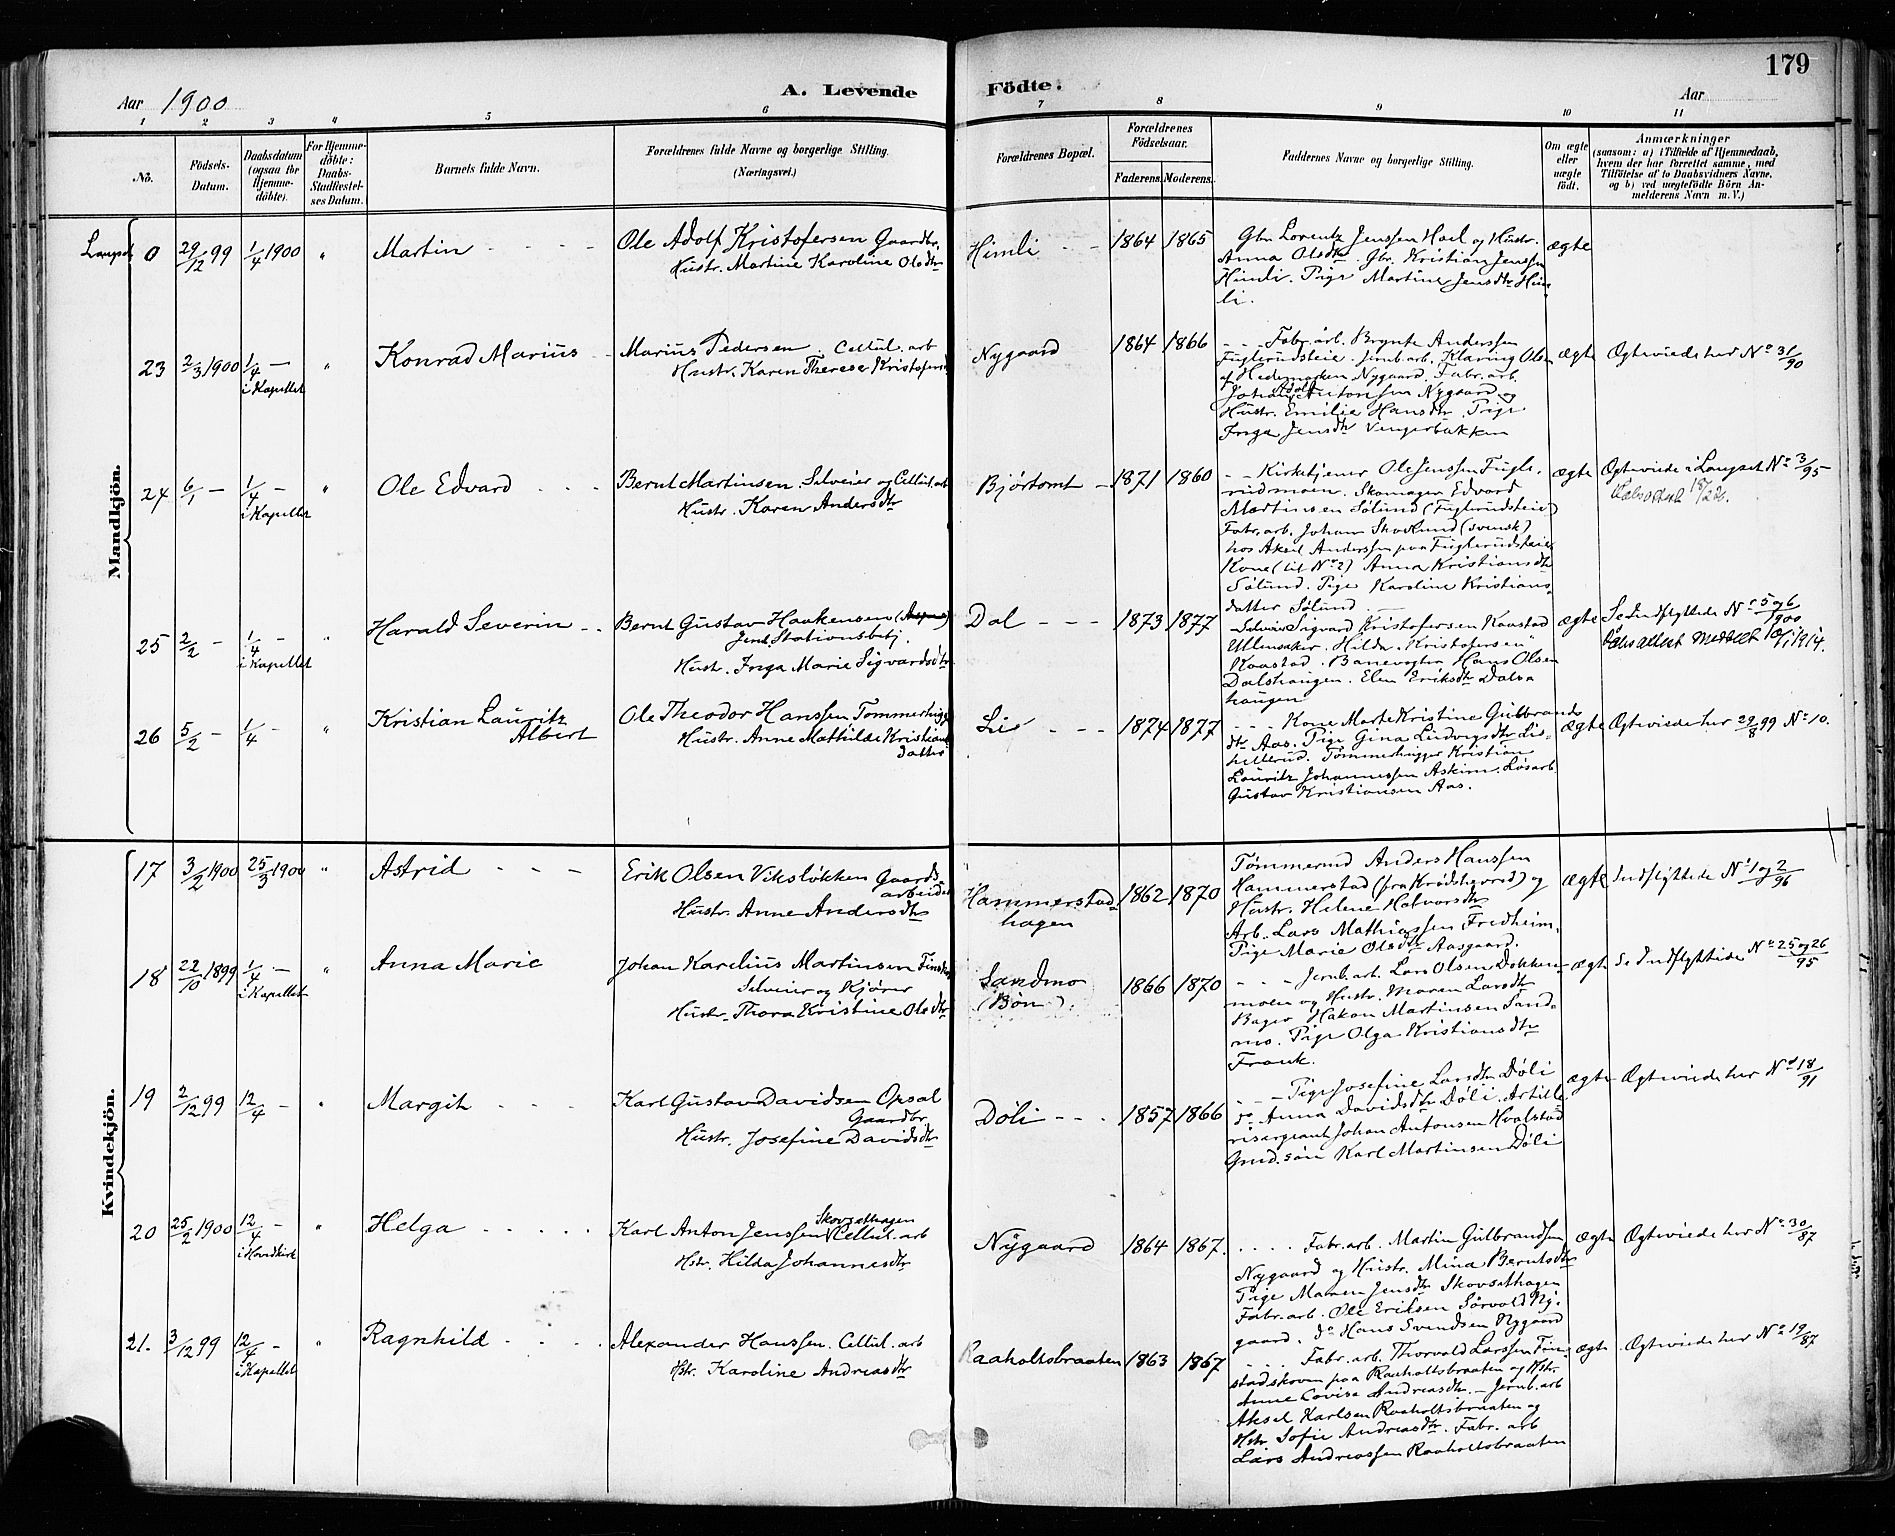 179
Aar 1900
A. Levende Födte.
Aar
1 2 3 4 5 6 7 8 9 10 11
No.
Födsels-
Datum.
Daabsdatum
(ogsaa for
Hjemme-
döbte).
For Hjemme-
döbte:
Daabs-
Stadfæstel-
ses Datum.
Barnets fulde Navn.
Forældrenes fulde Navne og borgerlige Stilling.
(Næringsvei.)
Forældrenes Bopæl.
Forældrenes
Födselsaar.
Faderens. Moderens.
Faddernes Navne og borgerlige Stilling.
Om ægte
eller
uægte
födt.
Anmærkninger
(saasom: a) i Tilfælde af Hjemmedaab,
hvem der har forrettet samme, med
Tilföielse af to Daabsvidners Navne,
og b) ved uægtefödte Börn An-
melderens Navn m. V.)
Mandkjön.
Langset 0 29/12 99 1/4 1900 " Martin
Ole Adolf Kristofersen Gaardbr.
Hustr. Martine Karoline Olsdtr
Himli 1864 1865
Gbr Lorentz Jenssen Hoel og Hustr.
Anna Olsdtr. Gbr. Kristian Jenssen
Himli. Pige Martine Jensdtr Him-
li.
ægte
23 2/3 1900 1/4 — i Kapellet " Konrad Marius
Marius Pedersen Cellul. arb
Hustr. Karen Therese Kristofersd
Nygaard 1864 1866
Fabr. arb. Brynte Anderssen
Fuglerudsteie. Jernb. arb. Klaring Olsen
af Hedemarken Nygaard. Fabr. arb.
Johan Adolf Antonsen Nygaard og
Hustr. Emilie Hansdtr. Pige
Inga Jensdtr Vengerbakken
ægte Ægteviede her No 31/90
24 6/1 — 1/4 — i Kapellet " Ole Edvard
Bernt Martinsen. Selveier og Cellul. arb
Hustr. Karen Andersdtr
Bjørtomt 1871 1860
Kirketjener Ole Jenssen Fugle-
rudmoen. Skomager Edvard
Martinsen Sølund (Fuglerudsteie)
Fabr. arb. Johan Skoglund (svensk)
hos Aksel Anderssen paa Fuglerudsteie
Kone (til No 2) Anna Kristiansdtr
Sølund. Pige Karoline Kristians-
datter Sølund
ægte Ægteviede i Langset No 3/95
25 2/2 — 1/4 — i Kapellet " Harald Severin
Bernt Gustav Haakensen
Jernb. Stationsbetj.
Hustr. Inga Marie Sigvardsdtr
Dal 1873 1877
Selveier Sigvard Kristofersen Kaastad
Ullensaker. Hilda Kristofersen
Kaastad. Banevogter Hans Olsen
Dalshaugen. Elen Eriksdtr Dals-
haugen
ægte Se Indflyttede No 5 og 6/900
26 5/2 — 1/4 — " Kristian Lauritz
Albert
Ole Theodor Hanssen Tømmerhugg
Hustr. Anne Mathilde Kristians-
datter
Lie 1874 1877
Kone Marte Kristine Gulbrands
dtr Aas. Pige Gina Ludvigsdtr Lis-
hellerud. Tømmerhugger Kristian
Lauritz Johannessen Askim. Løsarb.
Gustav Kristiansen Aas.
ægte Ægteviede her 29/8 99 No 10.
Kvindekjön.
17 3/2 1900 25/3 1900 " Astrid
Erik Olsen Viksløkken Gaards-
arbeider
Hustr. Anne Andersdtr
Hammerstad-
hagen 1862 1870
Tømmermd Anders Hanssen
Hammerstad (fra Krødshered) og
Hustr. Helene Halvorsdtr
Arb. Lars Mathiassen Fredheim.
Pige Marie Olsdtr Aasgaard.
ægte Indflyttede No 1 og 2/96
18 22/10 1899 1/4 — i Kapellet " Anna Marie
Johan Karelius Martinsen
Selveier og Kjører
Hustr. Thora Kristine Olsdtr
Sandmo
(Bøn). 1866 1870
Jernb. arb. Lars Olsen Dokken-
moen og Hustr. Maren Larsdtr
Bager Hakon Martinsen Sand-
mo. Pige Olga Kristiansdtr
Frank.
ægte Se Indflyttede No 25 og 26/95
19 2/12 99 12/4 — " Margit
Karl Gustav Davidsen Opsal
Gaardbr.
Hustr. Josefine Davidsdtr
Døli 1857 1866
Pige Josefine Larsdtr Døli
do Anna Davidsdtr Døli. Artille-
risergeant Johan Antonsen Hvalstad
Gmd. søn Karl Martinsen Døli
ægte Ægteviede her No 18/91
20 25/2 1900 12/4 — i Hovedkirk " Helga
Karl Anton Jenssen Skovsethagen Cellul. arb
Hstr. Hilda Johannesdtr
Nygaard 1864 1867.
Fabr. arb. Martin Gulbrandsen
Nygaard og Hustr. Mina Berntsdtr
Pige Maren Jensdtr Skovsethagen
Fabr. arb. Ole Eriksen Sörvold Ny-
gaard. do Hans Svendsen Nygaard
ægte Ægteviede her No 30/87
21. 3/12 99 12/4 — i Kapellet " Ragnhild
Alexander Hanssen. Cellul. arb
Hstr. Karoline Andreasdtr
Raaholtsbraaten 1863 1867
Fabr. arb. Thorvald Larssen Fin-
stadskoven paa Raaholtsbraaten og Hstr.
Anne Lovise Andreasdtr. — Jernb. arb
Aksel Karlsen Raaholtsbraaten og
Hstr. Sofie Andreasdtr. Fabr. arb
Lars Andreassen Raaholtsbraaten
ægte Ægteviede her No 19/87